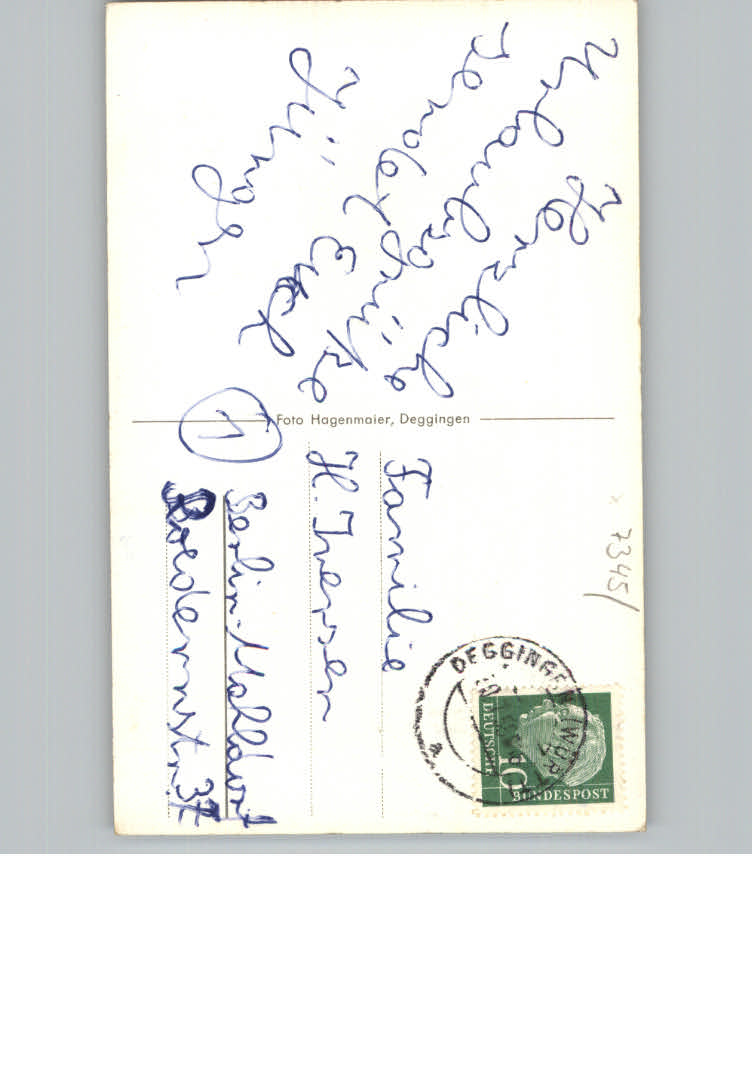 Herzliche
Urlaubsgrüße
sendet Euch
Jürgen
Foto Hagenmaier, Deggingen
7345/
DEGGINGEN
DEUTSCHE
10
BUNDESPOST
Familie
H. Iversen
1
Berlin-Mahlsdorf
Roedernstr. 37